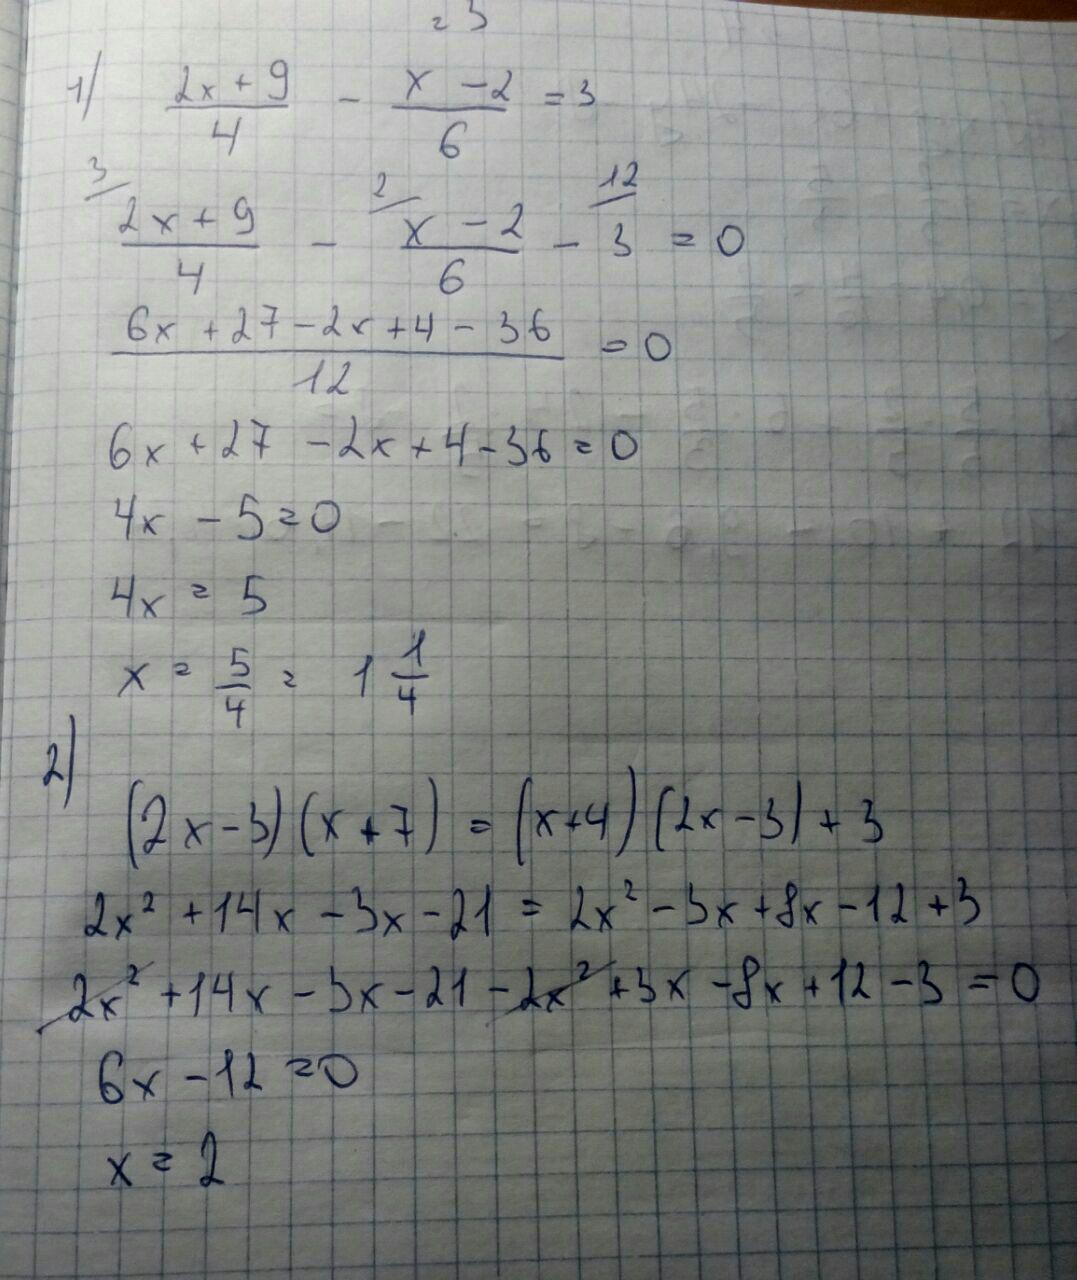 = 3
1) (2x + 9)/4 - (x - 2)/6 = 3
3/ (2x + 9)/4 - 2/ (x - 2)/6 - 12/ 3 = 0
(6x + 27 - 2x + 4 - 36)/12 = 0
6x + 27 - 2x + 4 - 36 = 0
4x - 5 = 0
4x = 5
x = 5/4 = 1 1/4
2)
(2x - 3)(x + 7) = (x + 4)(2x - 3) + 3
2x² + 14x - 3x - 21 = 2x² - 3x + 8x - 12 + 3
2x² + 14x - 3x - 21 - 2x² + 3x - 8x + 12 - 3 = 0
6x - 12 = 0
x = 2